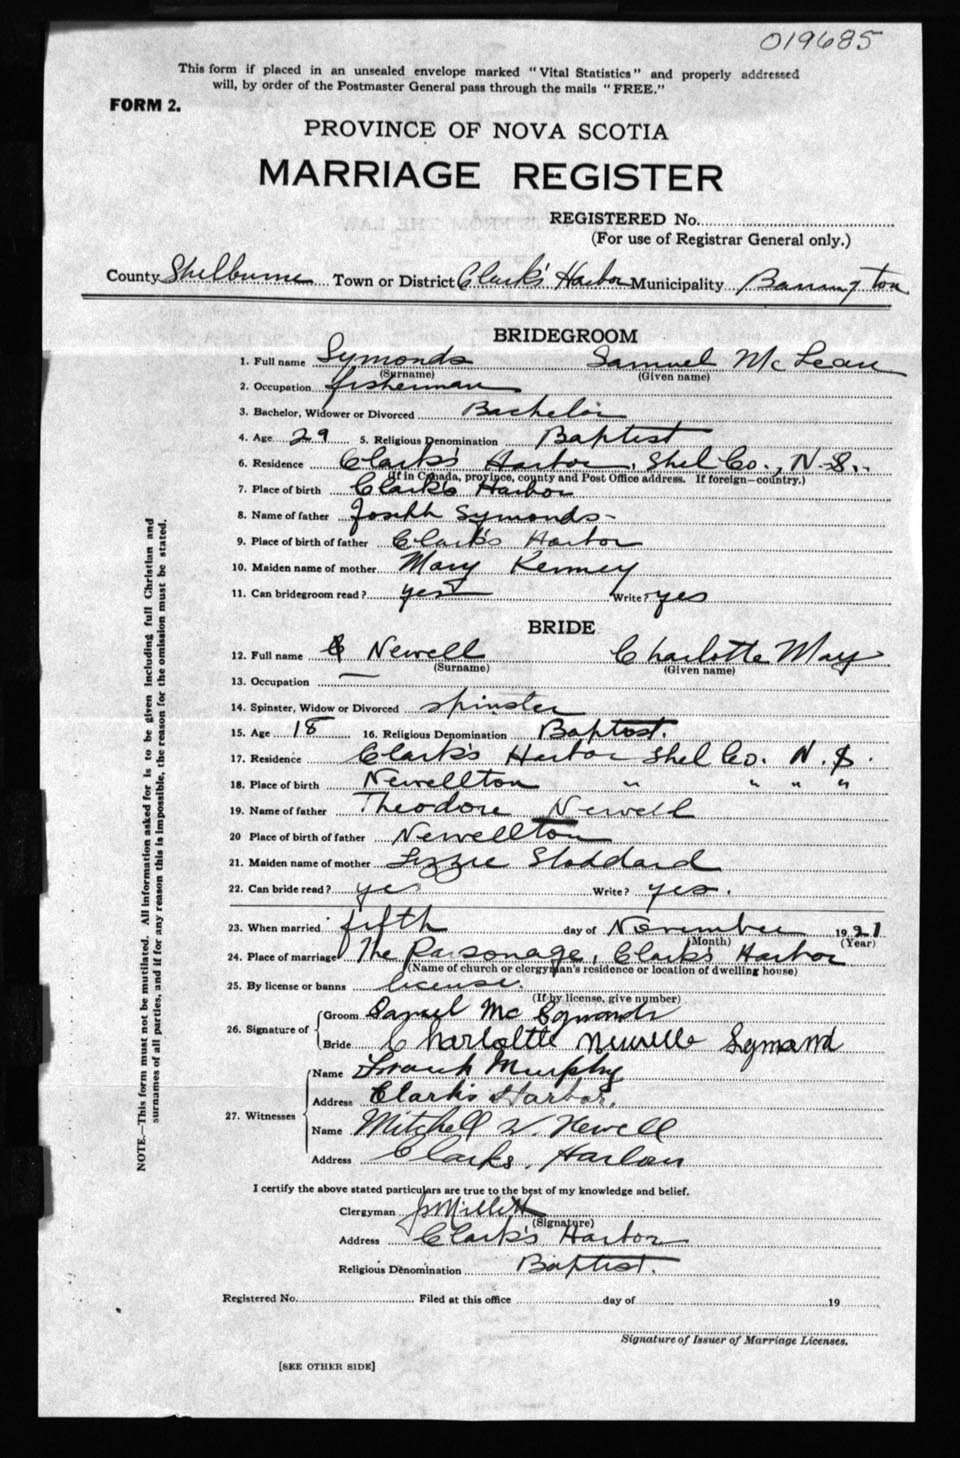 019685
This form if placed in an unsealed envelope marked "Vital Statistics" and properly addressed
will, by order of the Postmaster General pass through the mails "FREE."
FORM 2.
PROVINCE OF NOVA SCOTIA
MARRIAGE REGISTER
REGISTERED No.
(For use of Registrar General only.)
County Shelburne Town or District Clark's Harbor Municipality Barrington
BRIDEGROOM
1. Full name Symonds Samuel McLean
(Surname) (Given name)
2. Occupation fisherman
3. Bachelor, Widower or Divorced Bachelor
4. Age 29 5. Religious Denomination Baptist
6. Residence Clark's Harbor, Shel Co., N.S.
(If in Canada, province, county and Post Office address. If foreign—country.)
7. Place of birth Clark's Harbor
8. Name of father Joseph Symonds
9. Place of birth of father Clark's Harbor
10. Maiden name of mother Mary Kenney
11. Can bridegroom read? yes Write? yes
BRIDE
12. Full name Newell Charlotte May
(Surname) (Given name)
13. Occupation —
14. Spinster, Widow or Divorced spinster
15. Age 18 16. Religious Denomination Baptist.
17. Residence Clark's Harbor Shel Co. N.S.
18. Place of birth Newellton " " " "
19. Name of father Theodore Newell
20 Place of birth of father Newellton
21. Maiden name of mother Lizzie Stoddard
22. Can bride read? yes Write? yes.
23. When married fifth day of November 1921
(Month) (Year)
24. Place of marriage The Parsonage, Clark's Harbor
(Name of church or clergyman's residence or location of dwelling house)
25. By license or banns license.
(If by license, give number)
26. Signature of Groom Samuel Mc Symonds
Bride Charlotte Newelle Symond
27. Witnesses Name Frank Murphy
Address Clark's Harbor.
Name Mitchell W. Newell
Address Clarks, Harbor
I certify the above stated particulars are true to the best of my knowledge and belief.
Clergyman
(Signature)
Address Clark's Harbor
Religious Denomination Baptist.
Registered No. Filed at this office day of 19
Signature of Issuer of Marriage Licenses.
[SEE OTHER SIDE]
NOTE.—This form must not be mutilated. All information asked for is to be given including full Christian and
surnames of all parties, and if for any reason this is impossible, the reason for the omission must be stated.